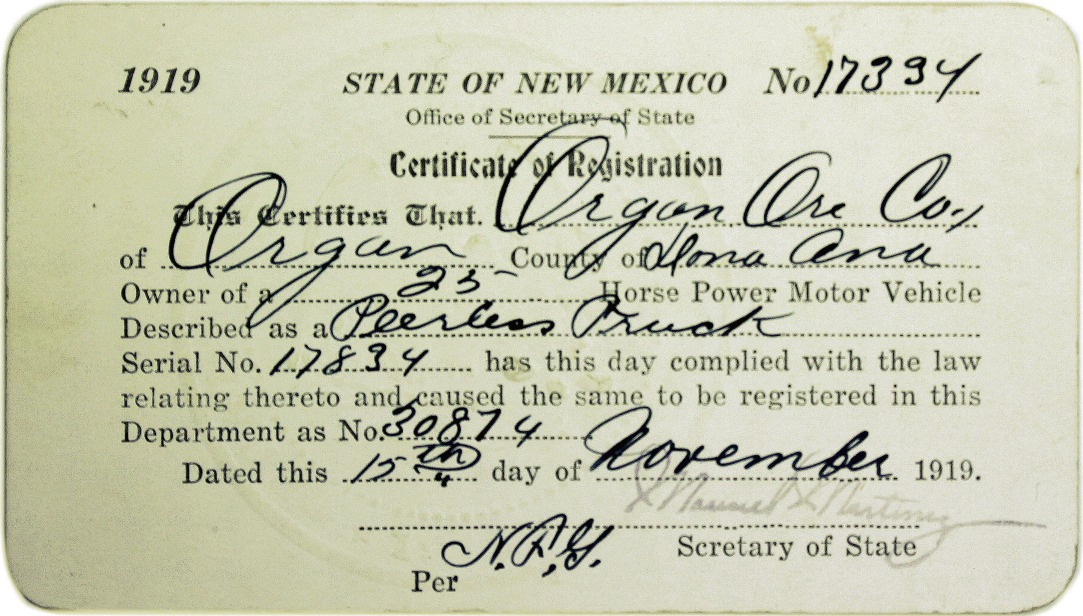 1919 STATE OF NEW MEXICO No 17394
Office of Secretary of State
Certificate of Registration
This Certifies That. Organ Ore Co.,
of Organ County of Dona Ana
Owner of a 25 Horse Power Motor Vehicle
Described as a Peerless Truck
Serial No. 17834 has this day complied with the law
relating thereto and caused the same to be registered in this
Department as No. 30874
Dated this 15th day of November 1919.
Manuel Martinez
Scretary of State
Per N.F.G.